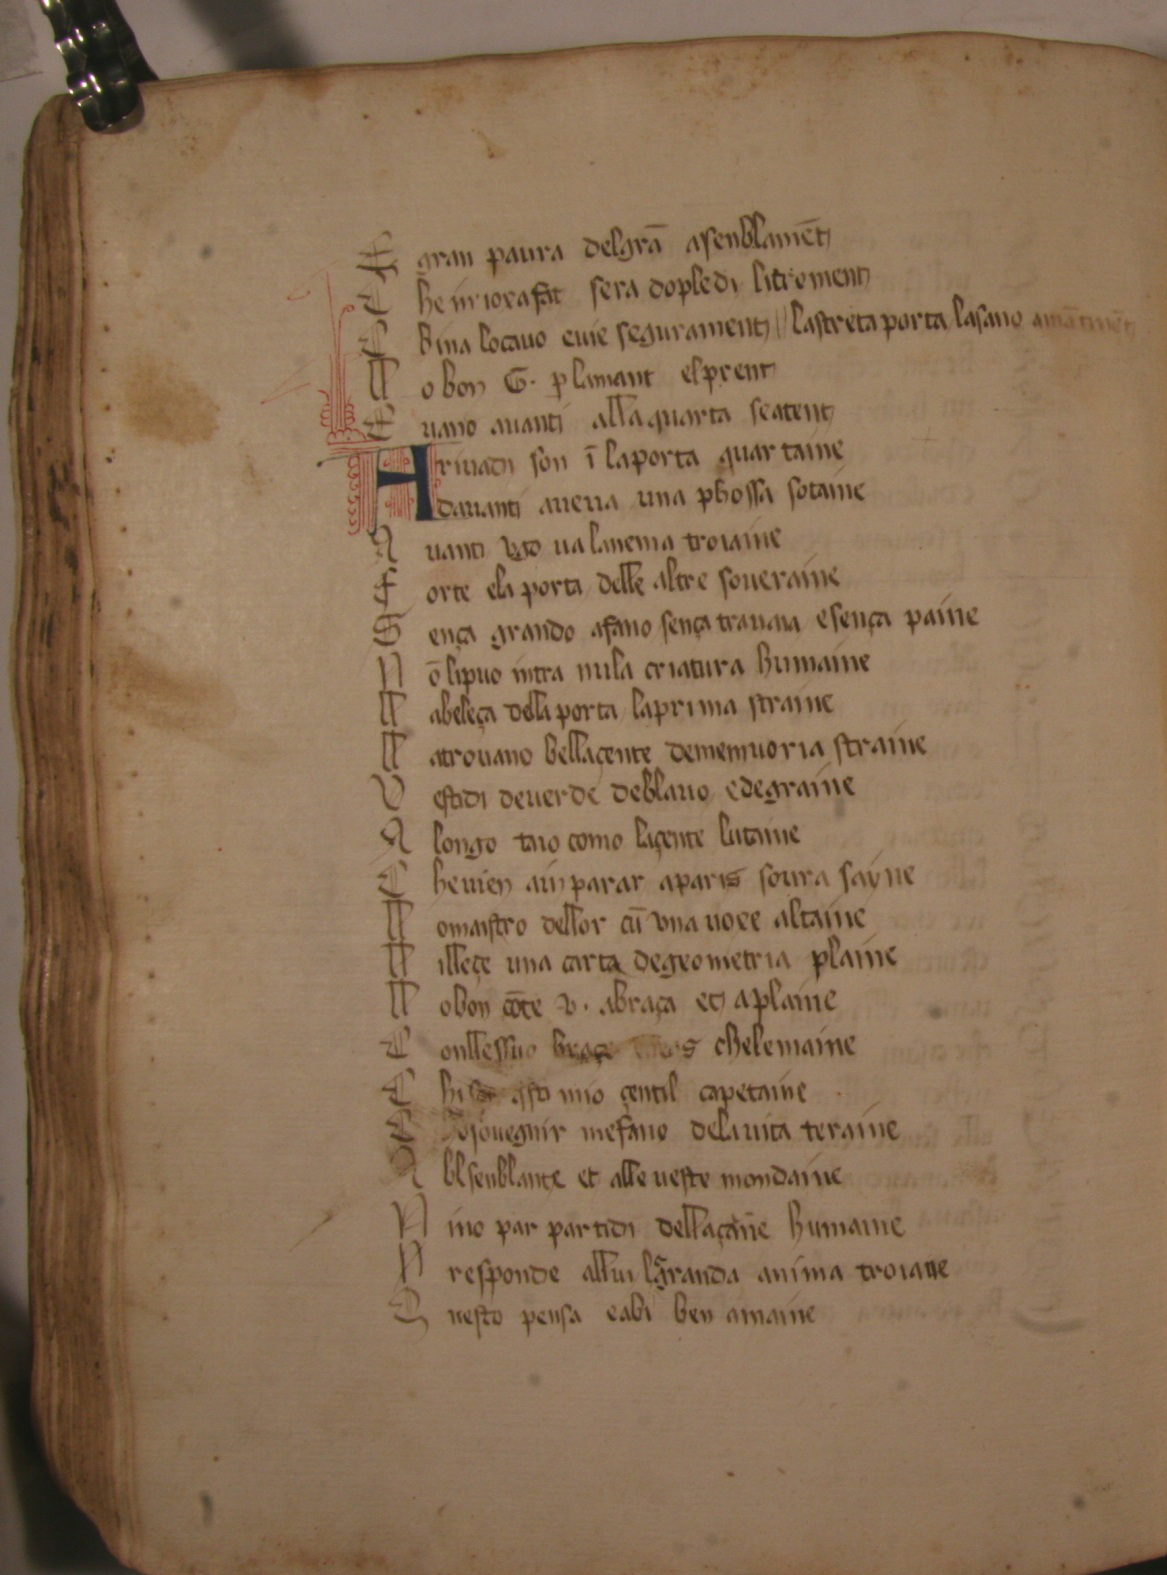 E gran paura del grā asenblamēt
C he in ioxa fat sera dople di li troment
C bina locauo euie segurament // la streta porta la sano
ll o bon G. ꝑ lamant el prent
E uano auanti alla quarta seatent
A riuadi son ī la porta quartaine
dauanti aueua una phossa sotaine
A uanti ua lanema troiaine
F orte ela porta delle altre soueraine
S ença grando afano sença trauaia e sença paine
N ō li puo intra nula criatura humaine
ll abeleça della porta la prima straine
ll a trouano bella çente de memuoria straine
V estidi de uerde de blauo e de graine
A longo taio como li çente lutaine
C he uien ain parar a paris soura sayne
ll o maistro dellor cū vna uoce altaine
ll i lleçe una carta de geometria plaine
ll o bon cōte v. abraça et aplaine
C on lle ssuo che le maine
C hi mio çentil capetaine
souegnir me fano de la uita teraine
A bl senblançe et alle ueste mondaine
N ino par partidi della çaine humaine
N responde allui la granda anima troiane
Q uesto pensa e abi ben amaine